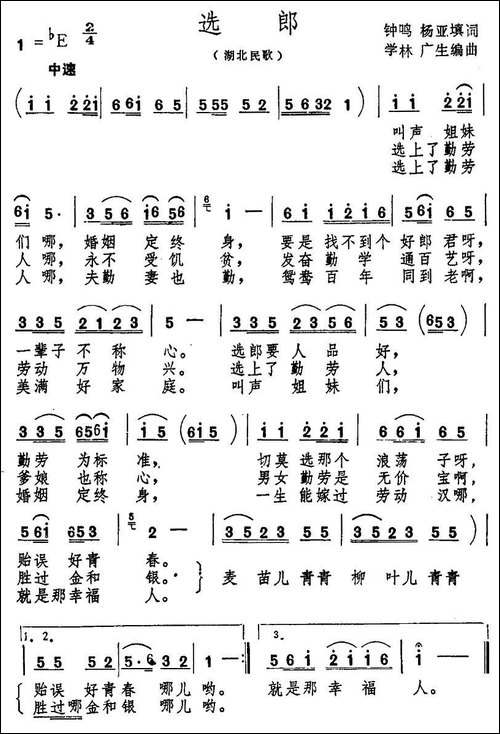 选郎
(湖北民歌)
1 = ♭E 2/4
钟鸣 杨亚填词
学林 广生编曲
中速
( i i 2 2i | 6 6i 6 5 | 5 55 5 2 | 5 6 32 1 ) | i i 2 2i |
叫声 姐妹
选上了勤劳
选上了勤劳
6i 5· | 3 56 i6 56 | i — | 6i i 1216 | 6i 2i 6 5 |
们哪, 婚姻 定终 身, 要是找不到个 好郎 君呀,
人哪, 永不 受饥 贫, 发奋 勤学 通百 艺呀,
人哪, 夫勤 妻也 勤, 鸳鸯 百年 同到 老啊,
3 35 2123 | 5 — | 3 35 2356 | 5·3 5 | (653) |
一辈子 不称 心。 选郎要 人品 好,
劳动 万物 兴。 选上了 勤劳 人,
美满 好家 庭。 叫声 姐妹 们,
5·3 5 656i | i 5 | (6i 5) | i i 22i | 6i 6 5 |
勤劳 为标 准, 切莫 选那个 浪荡 子呀,
爹娘 也称 心, 男女 勤劳是 无价 宝啊,
婚姻 定终 身, 一生 能嫁过 劳动 汉哪,
5 6i 653 | 2 — | 3 523 5 5 | 3 523 5 5 |
贻误 好青 春。
胜过 金和 银。 麦 苗儿 青青 柳 叶儿 青青
就是那幸福 人。
1. 2.
3.
5 5 5 52 | 5·6 32 | 1 — :| 5 6i 2i6 | i — |
贻误 好青春 哪儿 哟。 就是那 幸 福 人。
胜过哪金和银 哪儿 哟。